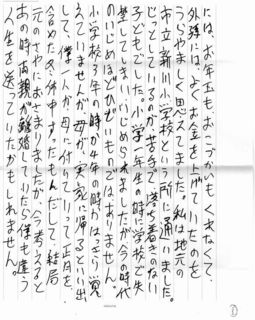 には、お年玉もおこづかいもくれなくて、
外孫には、よくお金を上げていたのを
うらやましく思えてました。私は地元の
市立新川小学校という所に通いました。
じっとしているのが苦手で落ち着きのない
子どもでした。小学一年生の時に学校で失
禁してしまい、いじめられましたが今の時代
のいじめほどひどいものではありません。
小学校3年の時か4年の時かはっきり覚
えていませんが母が、実家に帰るといい出
して、僕一人が母に付いていって正月を
含めた冬休中すごもんだして、結局
元のさやにおさまりましたが、今考えると
あの時両親が離婚していたら僕も違う
人生を送っていたかもしれません。
①